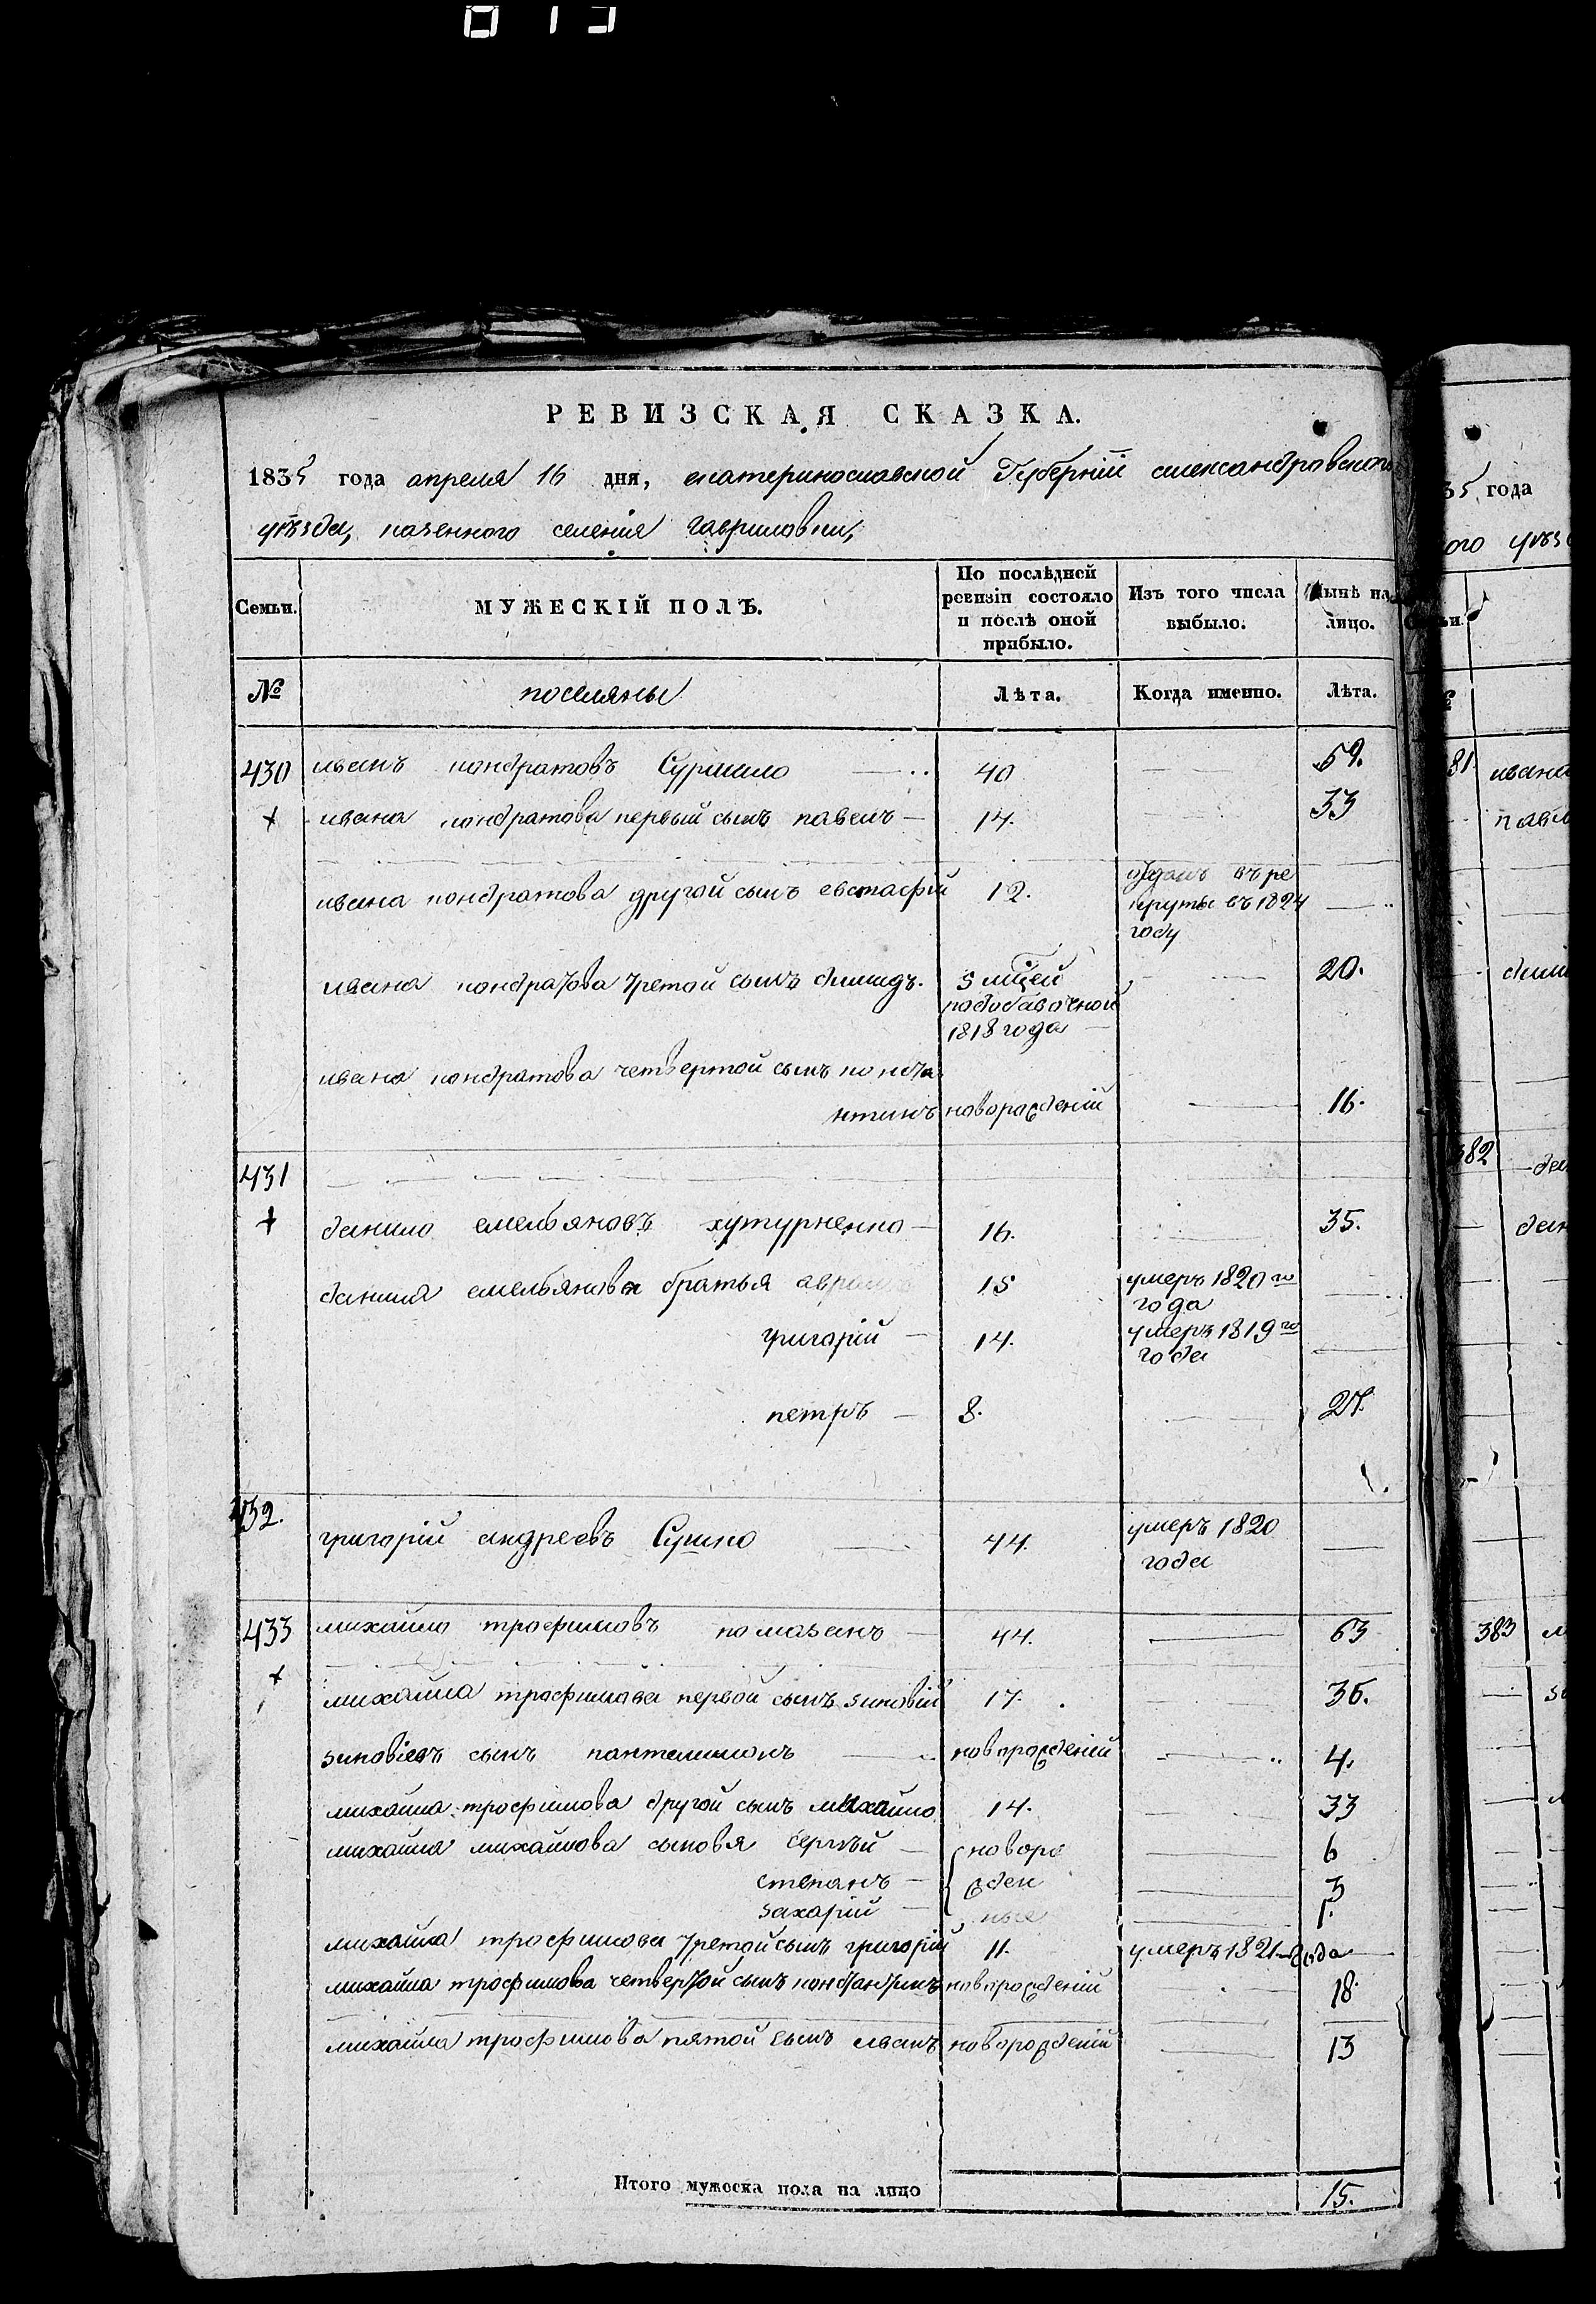 РЕВИЗСКАЯ СКАЗКА.
1835 года апреля 16 дня, екатеринославской Губернїи александровского
уѣзда, казенного селенїя гавриловки,
Семьи. МУЖЕСКІЙ ПОЛЪ. По послѣдней ревизіи состояло и послѣ оной прибыло. Изъ того числа выбыло. Нынѣ на лицо.
№ поселяны Лѣта. Когда именно. Лѣта.
430 иванъ кондратовъ 40 59.
ивана кондратова первый сынъ павелъ 14. 33
ивана кондратова другой сынъ евстафій 12. отданъ въ ре
круты въ 1824
году
ивана кондратова третой сынъ 5 мцей 20.
1818 года
ивана кондратова четвертой сынъ конста
нтинъ новорожденій 16.
431
данило емельяновъ 16. 35.
данила емельянова братья аврамъ 15 умеръ 1820го
года
григорій 14. умеръ 1819го
года
петръ 8. 27.
432. григорій андреевъ 44. умеръ 1820
года
433 михайло трофимовъ помазанъ 44. 63
михайла трофимова первой сынъ зиновій 17. 36.
зиновіевъ сынъ пантелимонъ новорожденій 4.
михайла трофимова другой сынъ михайло 14. 33
михайла михайлова сыновя сергѣй новоро 6
степанъ жден 3
захарій ные 1.
михайла трофимова третой сынъ григорій 11. умеръ 1821 года
михайла трофимова четвертой сынъ константинъ новорожденій 18.
михайла трофимова пятой сынъ иванъ новорожденій 13
Итого мужеска пола на лицо 15.
35 года
ого уѣз
81 ивана
павл
382
383